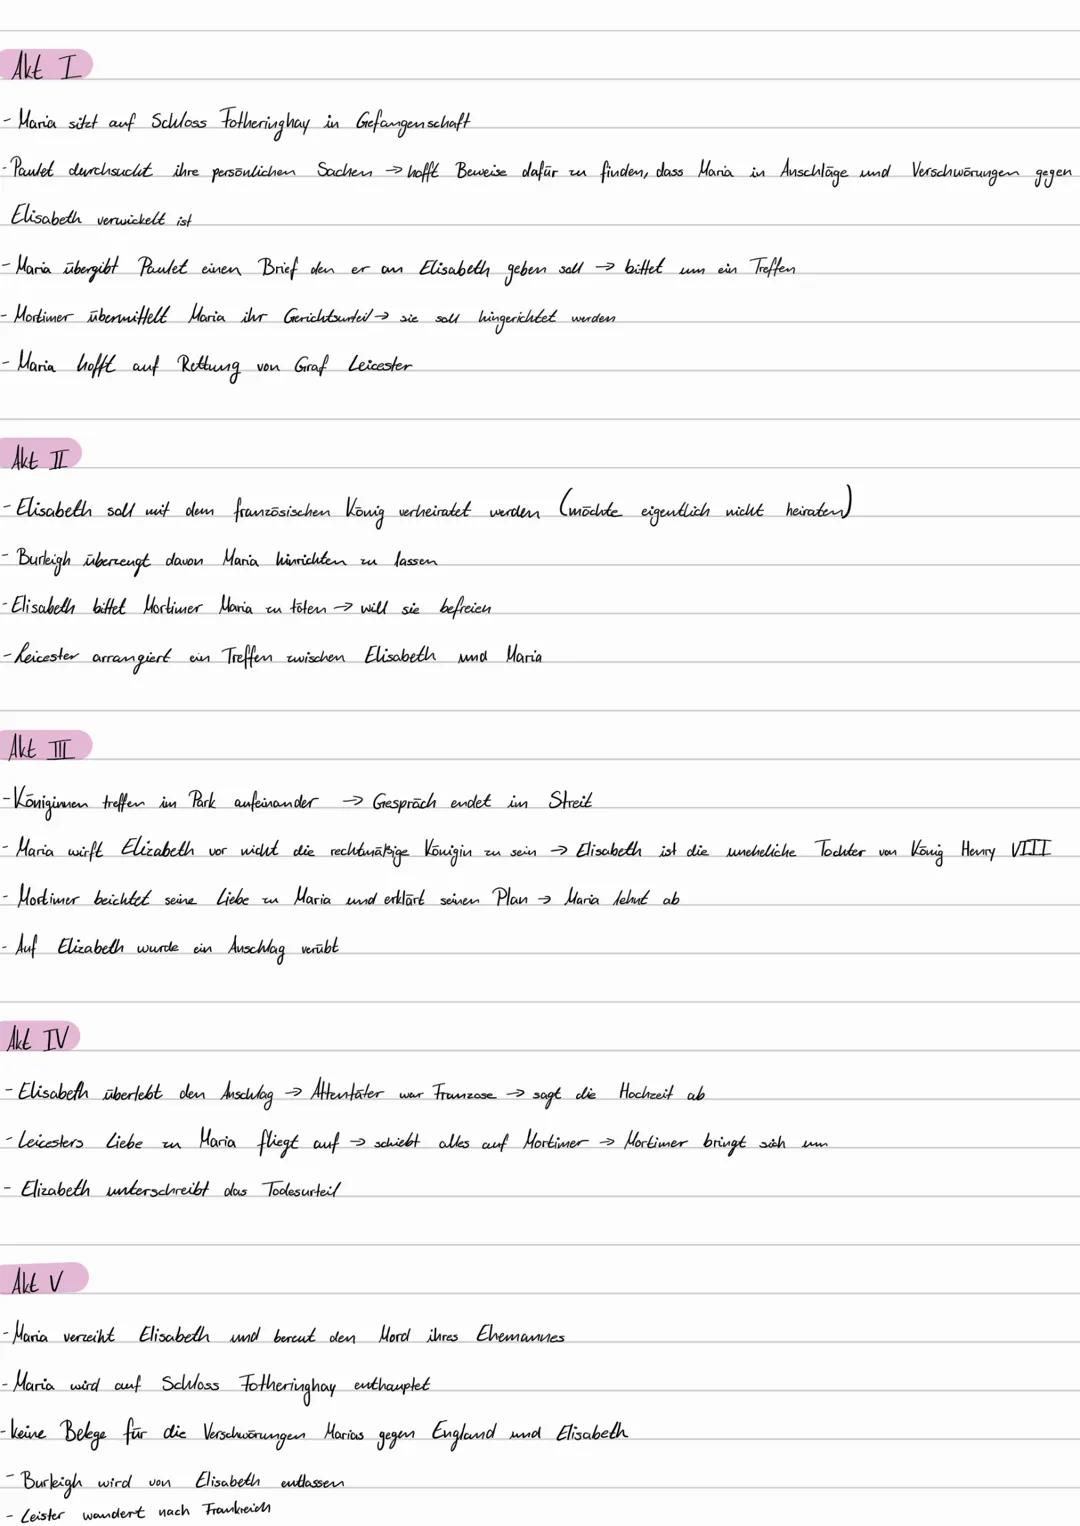 Akt I
- Maria sitzt auf Schloss Fotheringhay in Gefangenschaft
- Paulet durchsucht ihre persönlichen Sachen → hofft Beweise dafür zu finden, dass Maria in Anschläge und Verschwörungen gegen
Elisabeth verwickelt ist
- Maria übergibt Paulet einen Brief den er an Elisabeth geben soll → bittet um ein Treffen
- Mortimer übermittelt Maria ihr Gerichtsurteil → sie soll hingerichtet werden
- Maria hofft auf Rettung von Graf Leicester
Akt II
- Elisabeth soll mit dem französischen König verheiratet werden (möchte eigentlich nicht heiraten)
- Burleigh überzeugt davon Maria hinrichten zu lassen
- Elisabeth bittet Mortimer Maria zu töten → will sie befreien
- Leicester arrangiert ein Treffen zwischen Elisabeth und Maria
Akt III
- Königinnen treffen im Park aufeinander → Gespräch endet im Streit
- Maria wirft Elizabeth vor nicht die rechtmäßige Königin zu sein → Elisabeth ist die uneheliche Tochter von König Henry VIII
- Mortimer beichtet seine Liebe zu Maria und erklärt seinen Plan → Maria lehnt ab
- Auf Elizabeth wurde ein Anschlag verübt
Akt IV
- Elisabeth überlebt den Anschlag → Attentäter war Franzose → sagt die Hochzeit ab
- Leicesters Liebe zu Maria fliegt auf → schiebt alles auf Mortimer → Mortimer bringt sich um
- Elizabeth unterschreibt das Todesurteil
Akt V
- Maria verzeiht Elisabeth und bereut den Mord ihres Ehemannes
- Maria wird auf Schloss Fotheringhay enthauptet
- keine Belege für die Verschwörungen Marias gegen England und Elisabeth
- Burleigh wird von Elisabeth entlassen
- Leister wandert nach Frankreich